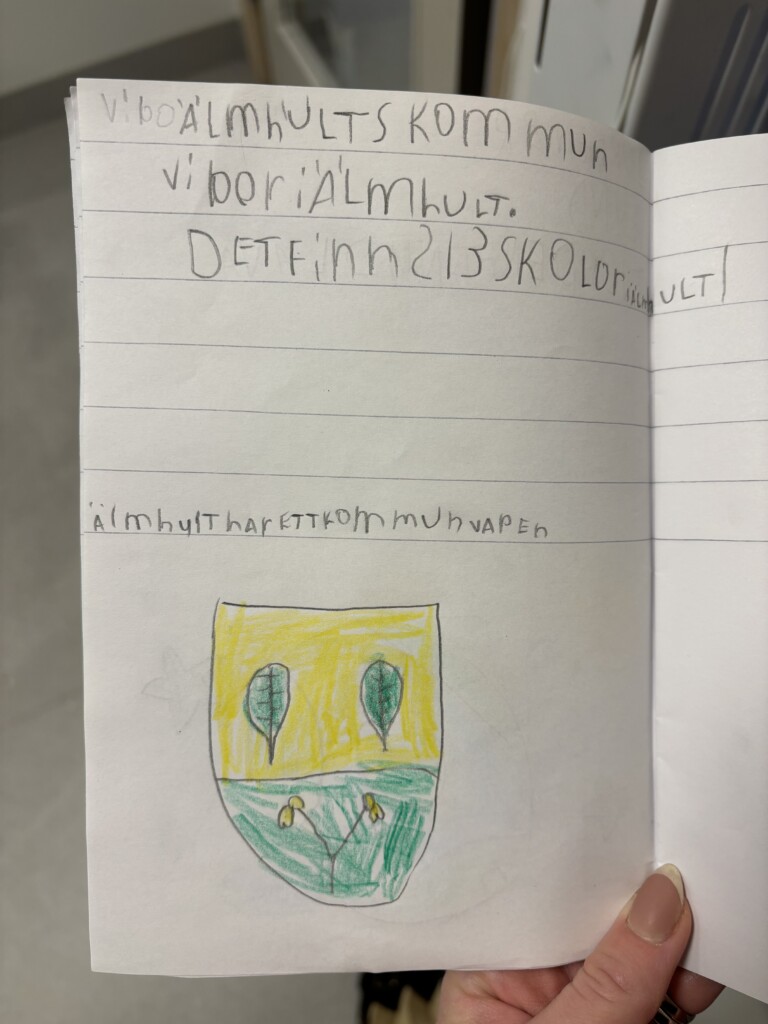 Vi bo ÄLmhULTS KOmmUn
Vi bor i ÄLmhULT.
DET Finns 13 SKOLOr i ÄLmhULT
ÄlmhulT hAr ETT KOmmUnVAPEn